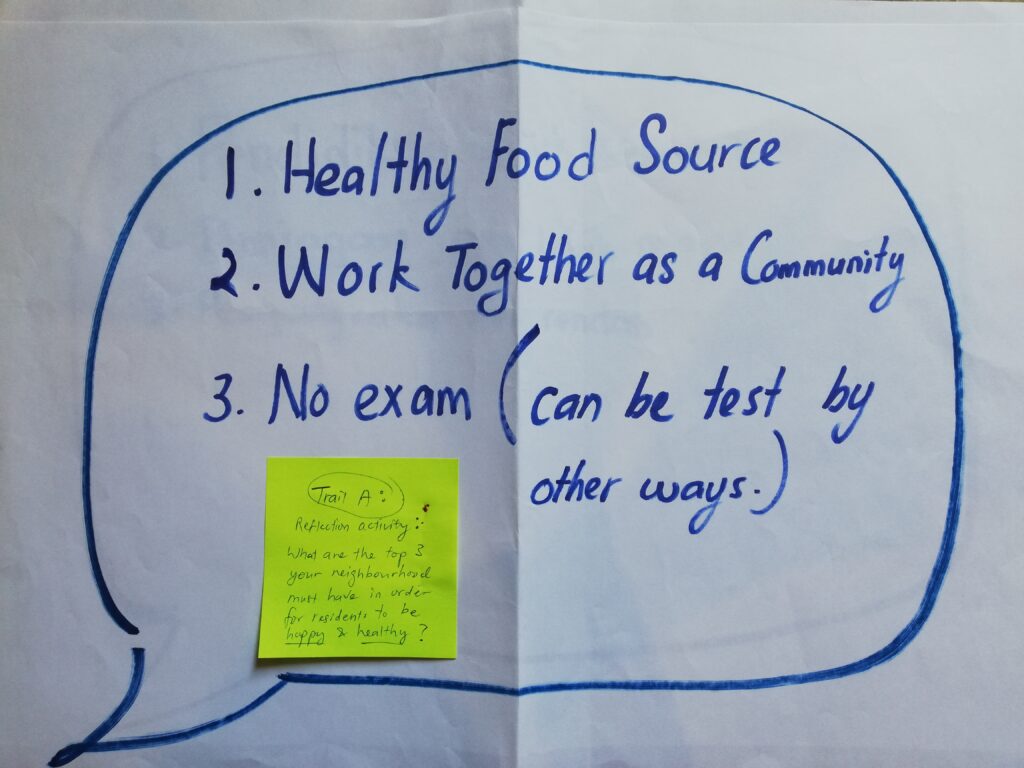 1. Healthy Food Source
2. Work Together as a Community
3. No exam (can be test by
other ways.)
Trail A:
Reflection activity:
What are the top 3
your neighbourhood
must have in order
for residents to be
happy & healthy?